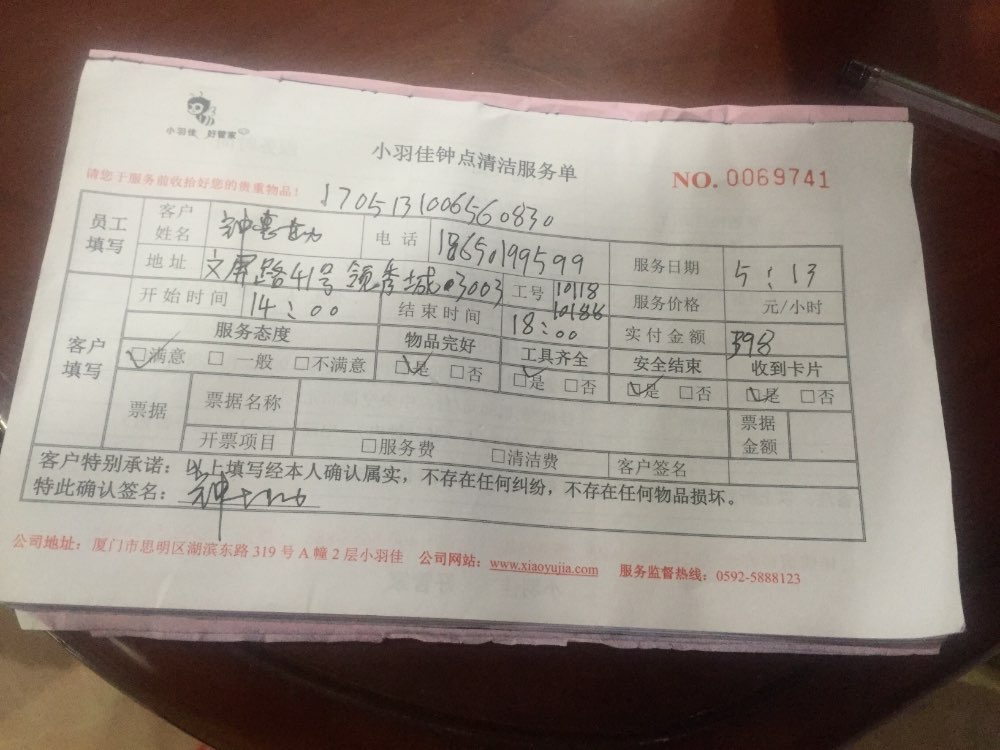 小羽佳 好管家
小羽佳钟点清洁服务单
请您于服务前收拾好您的贵重物品！
NO. 0069741
1705131006560830
员工填写 客户姓名 钟惠 电话 18650199599 服务日期 5:13
地址 文屏路41号领秀城 3003 工号 10118 10186 服务价格 元/小时
客户填写 开始时间 14:00 结束时间 18:00 实付金额 398
服务态度 物品完好 工具齐全 安全结束 收到卡片
☑满意 □一般 □不满意 ☑是 □否 ☑是 □否 ☑是 □否 ☑是 □否
票据 票据名称 票据金额
开票项目 □服务费 □清洁费 客户签名
客户特别承诺：以上填写经本人确认属实，不存在任何纠纷，不存在任何物品损坏。
特此确认签名：钟
公司地址：厦门市思明区湖滨东路 319 号 A 幢 2 层小羽佳 公司网站：www.xiaoyujia.com 服务监督热线：0592-5888123